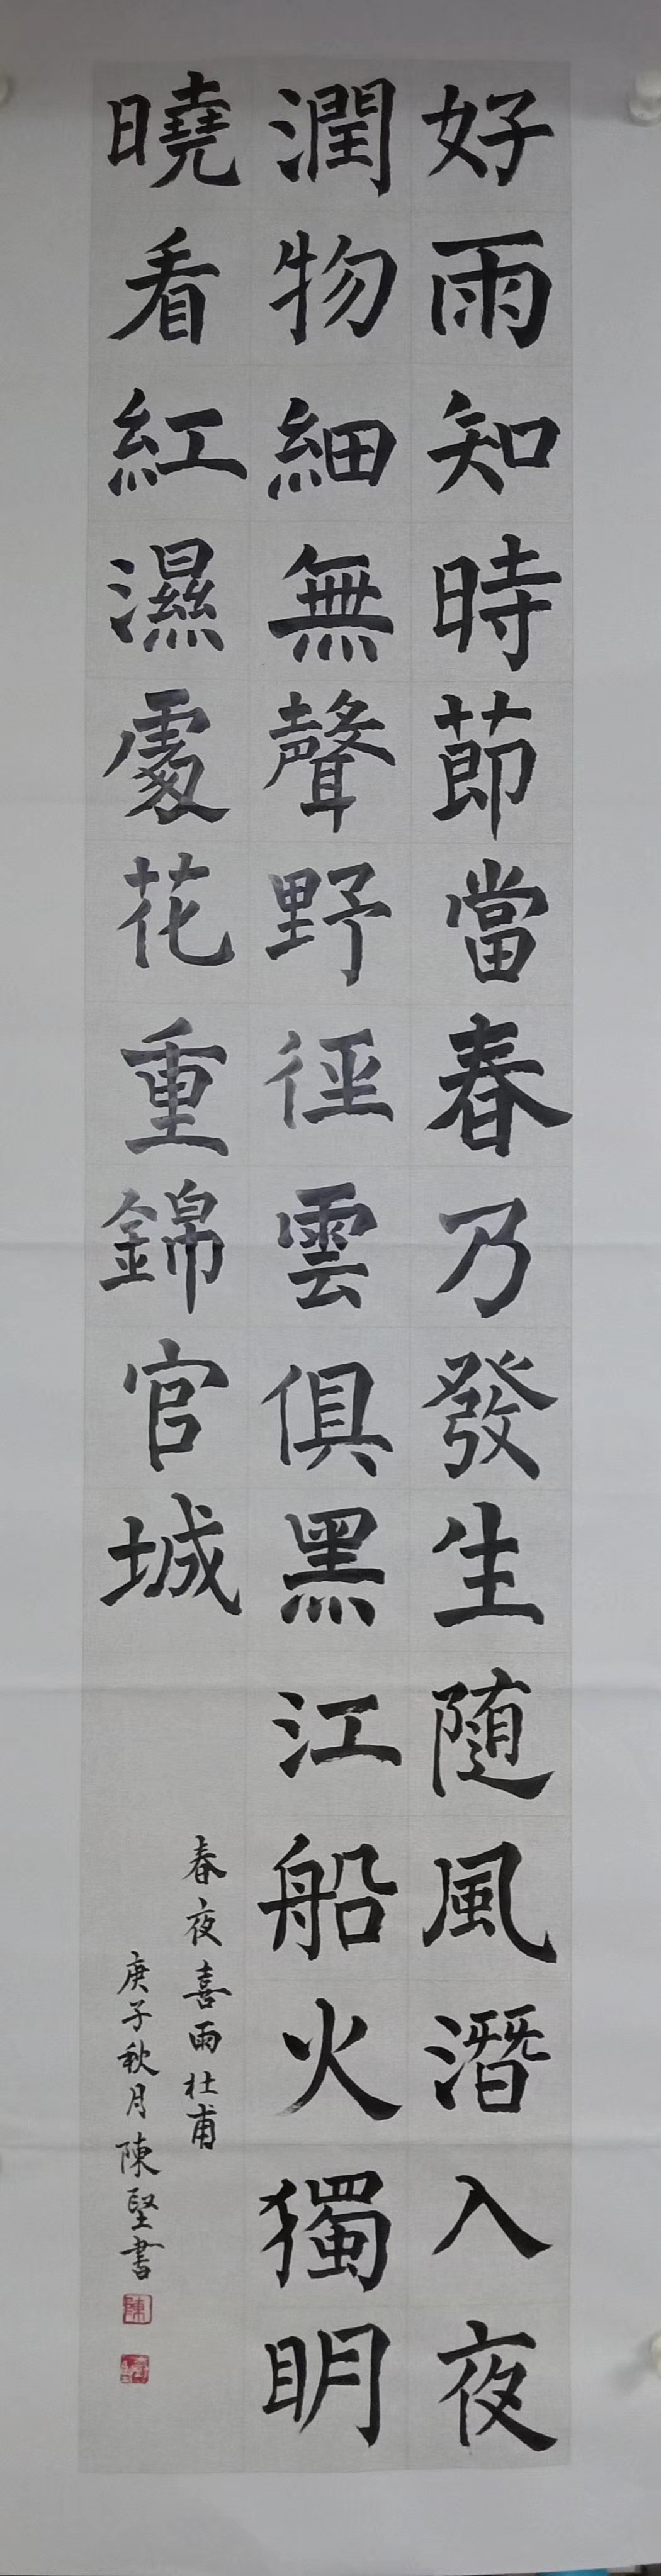 好雨知時節當春乃發生隨風潛入夜
潤物細無聲野徑雲俱黑江船火獨明
曉看紅濕處花重錦官城
春夜喜雨杜甫
庚子秋月陳堅書
陳